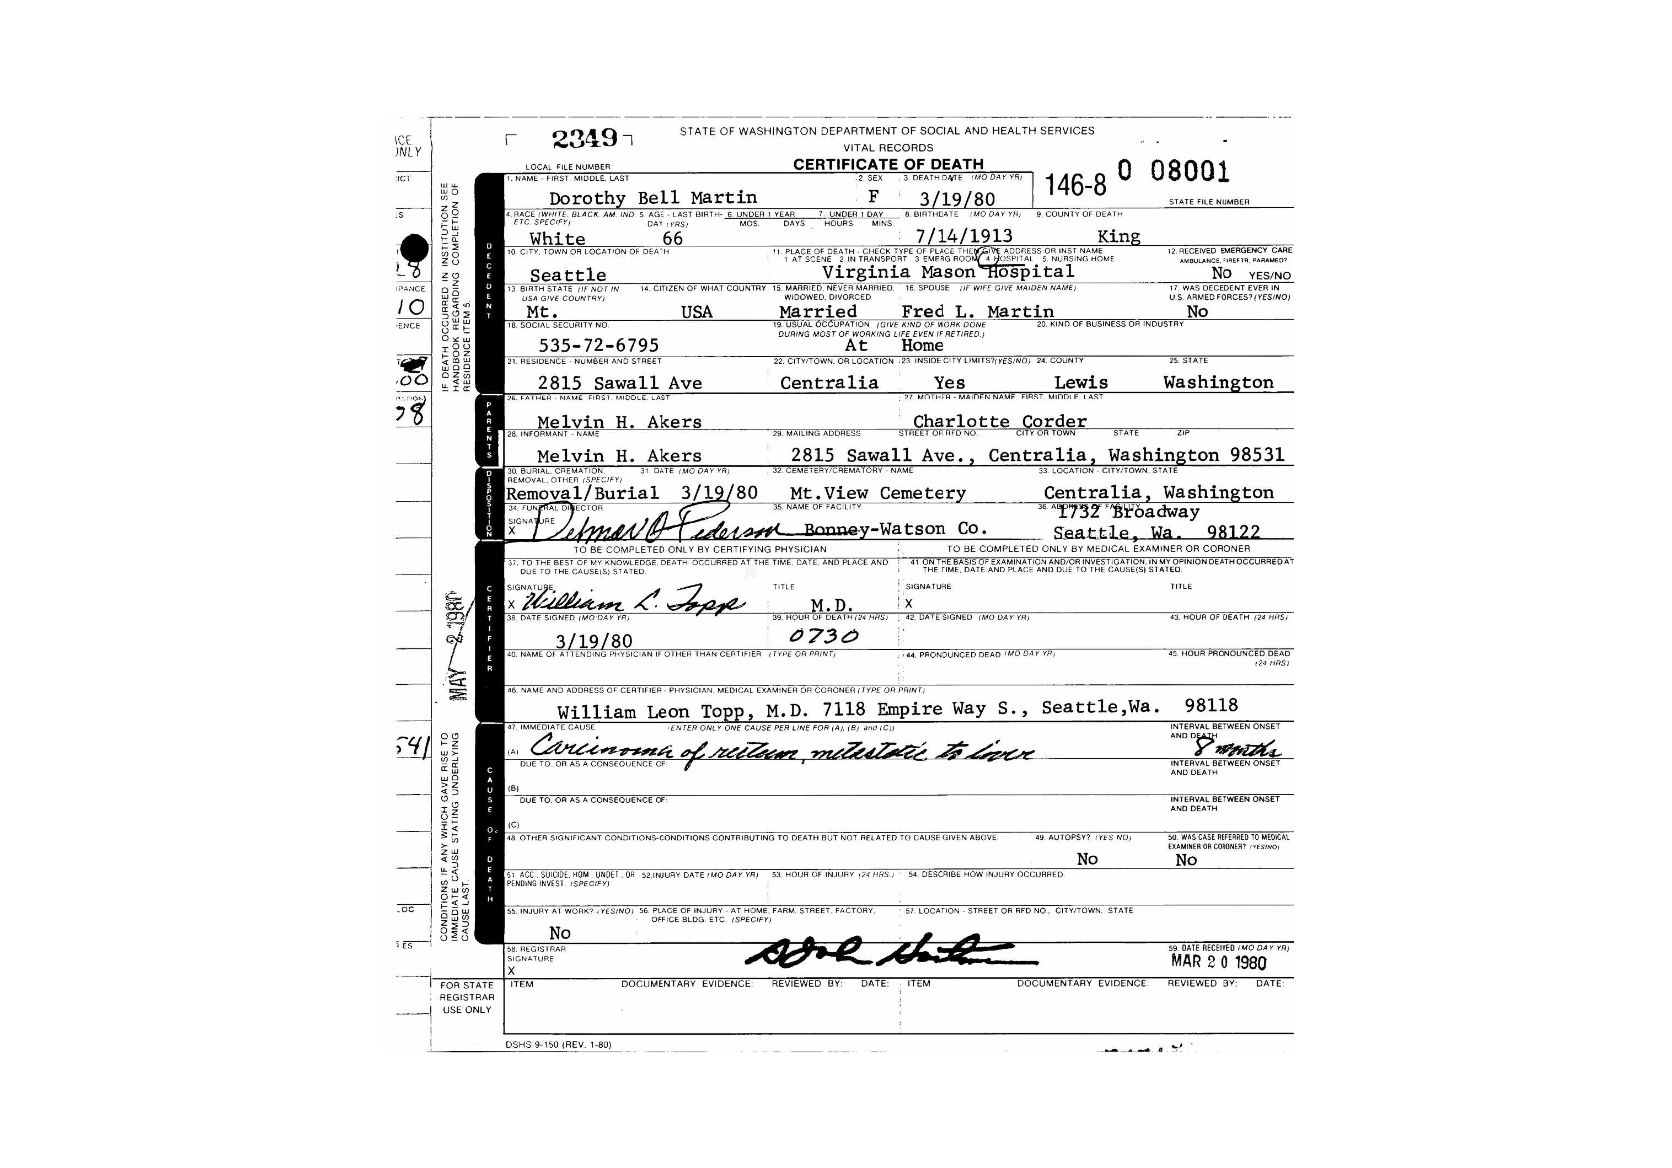 2349
STATE OF WASHINGTON DEPARTMENT OF SOCIAL AND HEALTH SERVICES
VITAL RECORDS
LOCAL FILE NUMBER
CERTIFICATE OF DEATH
146-8 0 08001
STATE FILE NUMBER
1. NAME - FIRST, MIDDLE, LAST 2. SEX 3. DEATH DATE (MO DAY YR)
Dorothy Bell Martin F 3/19/80
4. RACE (WHITE, BLACK, AM. IND. ETC. SPECIFY) 5. AGE - LAST BIRTHDAY (YRS) 6. UNDER 1 YEAR MOS. DAYS 7. UNDER 1 DAY HOURS MINS. 8. BIRTHDATE (MO DAY YR) 9. COUNTY OF DEATH
White 66 7/14/1913 King
10. CITY, TOWN OR LOCATION OF DEATH 11. PLACE OF DEATH - CHECK TYPE OF PLACE THEN GIVE ADDRESS OR INST NAME 12. RECEIVED EMERGENCY CARE
1 AT SCENE 2 IN TRANSPORT 3 EMERG ROOM 4 HOSPITAL 5. NURSING HOME AMBULANCE, FIREFTR, PARAMED?
Seattle Virginia Mason Hospital No YES/NO
13 BIRTH STATE (IF NOT IN USA GIVE COUNTRY) 14. CITIZEN OF WHAT COUNTRY 15. MARRIED, NEVER MARRIED, WIDOWED, DIVORCED 16. SPOUSE (IF WIFE GIVE MAIDEN NAME) 17. WAS DECEDENT EVER IN U.S. ARMED FORCES? (YES/NO)
Mt. USA Married Fred L. Martin No
18. SOCIAL SECURITY NO. 19. USUAL OCCUPATION (GIVE KIND OF WORK DONE DURING MOST OF WORKING LIFE EVEN IF RETIRED.) 20. KIND OF BUSINESS OR INDUSTRY
535-72-6795 At Home
21. RESIDENCE - NUMBER AND STREET 22. CITY/TOWN, OR LOCATION 23. INSIDE CITY LIMITS? (YES/NO) 24. COUNTY 25. STATE
2815 Sawall Ave Centralia Yes Lewis Washington
26. FATHER - NAME FIRST, MIDDLE, LAST 27. MOTHER - MAIDEN NAME FIRST, MIDDLE, LAST
Melvin H. Akers Charlotte Corder
28. INFORMANT - NAME 29. MAILING ADDRESS STREET OR RFD NO. CITY OR TOWN STATE ZIP
Melvin H. Akers 2815 Sawall Ave., Centralia, Washington 98531
30. BURIAL, CREMATION, REMOVAL, OTHER (SPECIFY) 31. DATE (MO DAY YR) 32. CEMETERY/CREMATORY - NAME 33. LOCATION - CITY/TOWN, STATE
Removal/Burial 3/19/80 Mt.View Cemetery Centralia, Washington
34. FUNERAL DIRECTOR 35. NAME OF FACILITY 36. ADDRESS OF FACILITY
1732 Broadway
SIGNATURE
X Delmar O Pederson Bonney-Watson Co. Seattle, Wa. 98122
TO BE COMPLETED ONLY BY CERTIFYING PHYSICIAN TO BE COMPLETED ONLY BY MEDICAL EXAMINER OR CORONER
37. TO THE BEST OF MY KNOWLEDGE, DEATH OCCURRED AT THE TIME, DATE, AND PLACE AND DUE TO THE CAUSE(S) STATED.
41. ON THE BASIS OF EXAMINATION AND/OR INVESTIGATION, IN MY OPINION DEATH OCCURRED AT THE TIME, DATE AND PLACE AND DUE TO THE CAUSE(S) STATED.
SIGNATURE TITLE SIGNATURE TITLE
X William L. Topp M.D. X
38. DATE SIGNED (MO DAY YR) 39. HOUR OF DEATH (24 HRS) 42. DATE SIGNED (MO DAY YR) 43. HOUR OF DEATH (24 HRS)
3/19/80 0730
40. NAME OF ATTENDING PHYSICIAN IF OTHER THAN CERTIFIER (TYPE OR PRINT) 44. PRONOUNCED DEAD (MO DAY YR) 45. HOUR PRONOUNCED DEAD (24 HRS)
46. NAME AND ADDRESS OF CERTIFIER - PHYSICIAN, MEDICAL EXAMINER OR CORONER (TYPE OR PRINT)
William Leon Topp, M.D. 7118 Empire Way S., Seattle,Wa. 98118
47. IMMEDIATE CAUSE (ENTER ONLY ONE CAUSE PER LINE FOR (A), (B) and (C)) INTERVAL BETWEEN ONSET AND DEATH
(A) Carcinoma of rectum, metastatic to liver 8 months
DUE TO, OR AS A CONSEQUENCE OF: INTERVAL BETWEEN ONSET AND DEATH
(B)
DUE TO, OR AS A CONSEQUENCE OF: INTERVAL BETWEEN ONSET AND DEATH
(C)
48. OTHER SIGNIFICANT CONDITIONS-CONDITIONS CONTRIBUTING TO DEATH BUT NOT RELATED TO CAUSE GIVEN ABOVE. 49. AUTOPSY? (YES NO) 50. WAS CASE REFERRED TO MEDICAL EXAMINER OR CORONER? (YES/NO)
No No
51. ACC., SUICIDE, HOM., UNDET., OR PENDING INVEST. (SPECIFY) 52. INJURY DATE (MO DAY YR) 53. HOUR OF INJURY (24 HRS.) 54. DESCRIBE HOW INJURY OCCURRED
55. INJURY AT WORK? (YES/NO) 56. PLACE OF INJURY - AT HOME, FARM, STREET, FACTORY, OFFICE BLDG. ETC. (SPECIFY) 57. LOCATION - STREET OR RFD NO., CITY/TOWN, STATE
No
58. REGISTRAR 59. DATE RECEIVED (MO DAY YR)
SIGNATURE
X MAR 20 1980
FOR STATE REGISTRAR USE ONLY
ITEM DOCUMENTARY EVIDENCE: REVIEWED BY: DATE: ITEM DOCUMENTARY EVIDENCE: REVIEWED BY: DATE:
DSHS 9-150 (REV. 1-80)
IF DEATH OCCURRED IN INSTITUTION SEE HANDBOOK REGARDING COMPLETION OF RESIDENCE ITEMS.
MAY - 2 1980
CONDITIONS IF ANY WHICH GAVE RISE TO IMMEDIATE CAUSE STATING UNDERLYING CAUSE LAST.
DECEDENT
PARENTS
DISPOSITION
CERTIFIER
CAUSE OF DEATH